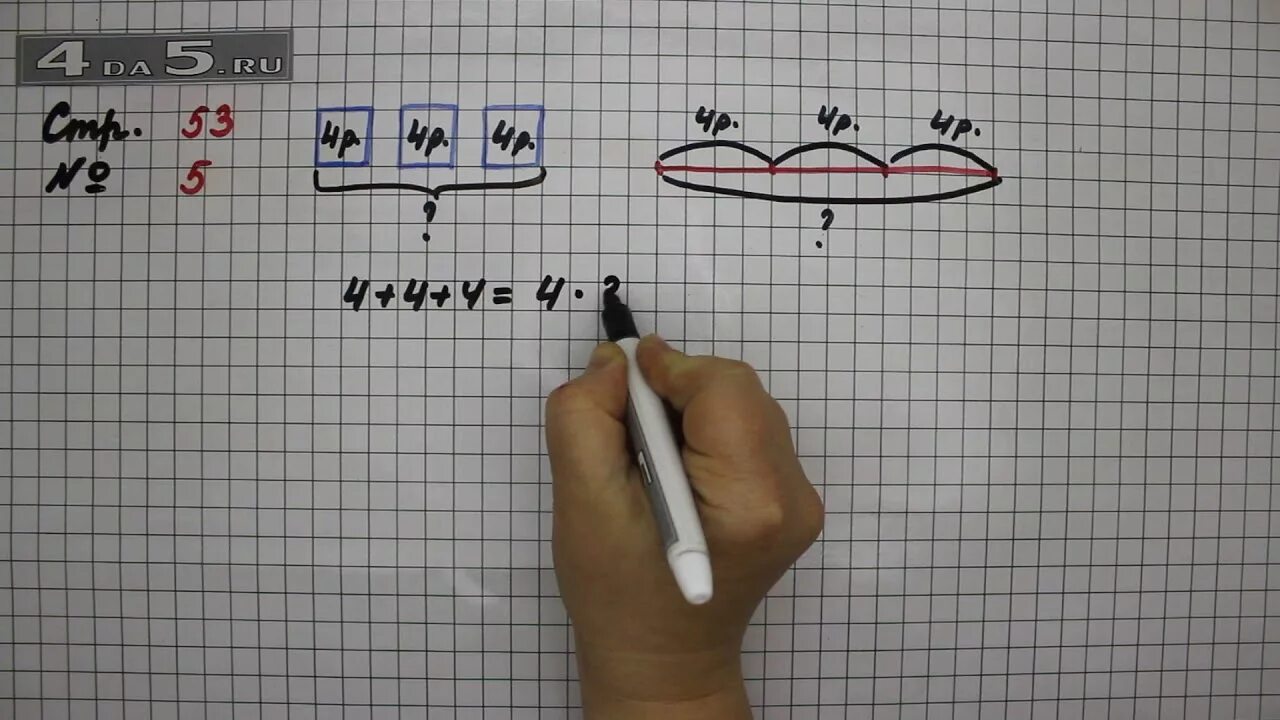 4DA5.RU
Стр. 53
№ 5
4р. 4р. 4р.
?
4р. 4р. 4р.
?
4+4+4= 4 ·